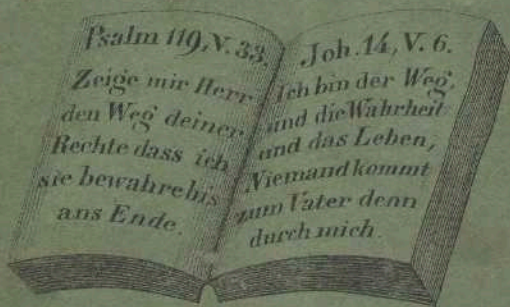 Psalm 119, V. 33.
Zeige mir Herr
den Weg deiner
Rechte dass ich
sie bewahre bis
ans Ende.
Joh. 14, V. 6.
Ich bin der Weg,
und die Wahrheit
und das Leben,
Niemand kommt
zum Vater denn
durch mich.